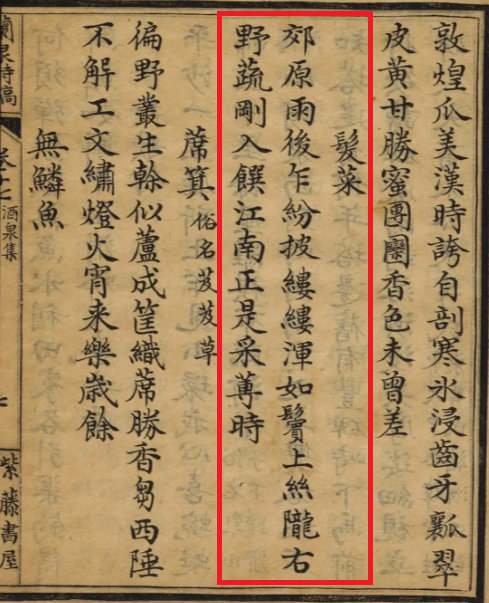 敦煌瓜美漢時誇自剖寒氷浸齒牙瓤翠
皮黃甘勝蜜團團香色未曾差
髮菜
郊原雨後乍紛披縷縷渾如鬢上絲隴右
野蔬剛入饌江南正是采蓴時
蓆箕俗名芨芨草
徧野叢生榦似蘆成筐織蓆勝香芻西陲
不解工文繡燈火宵来樂歲餘
無鱗魚
蘭泉詩稿
酒泉集
紫藤書屋